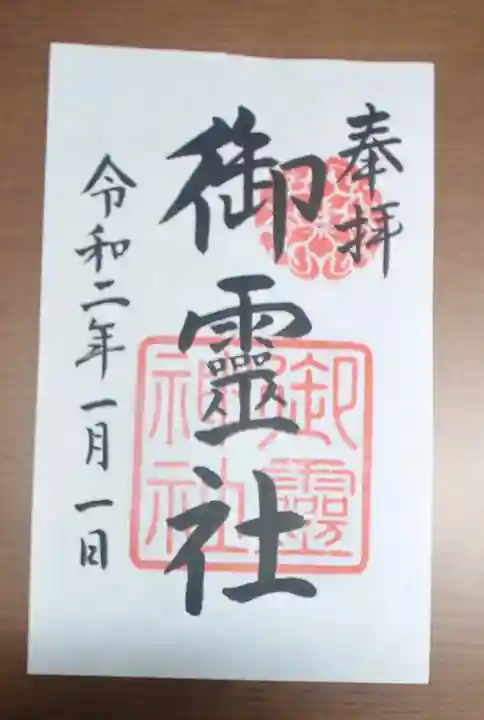 奉拝
御靈社
御靈神社
令和二年一月一日